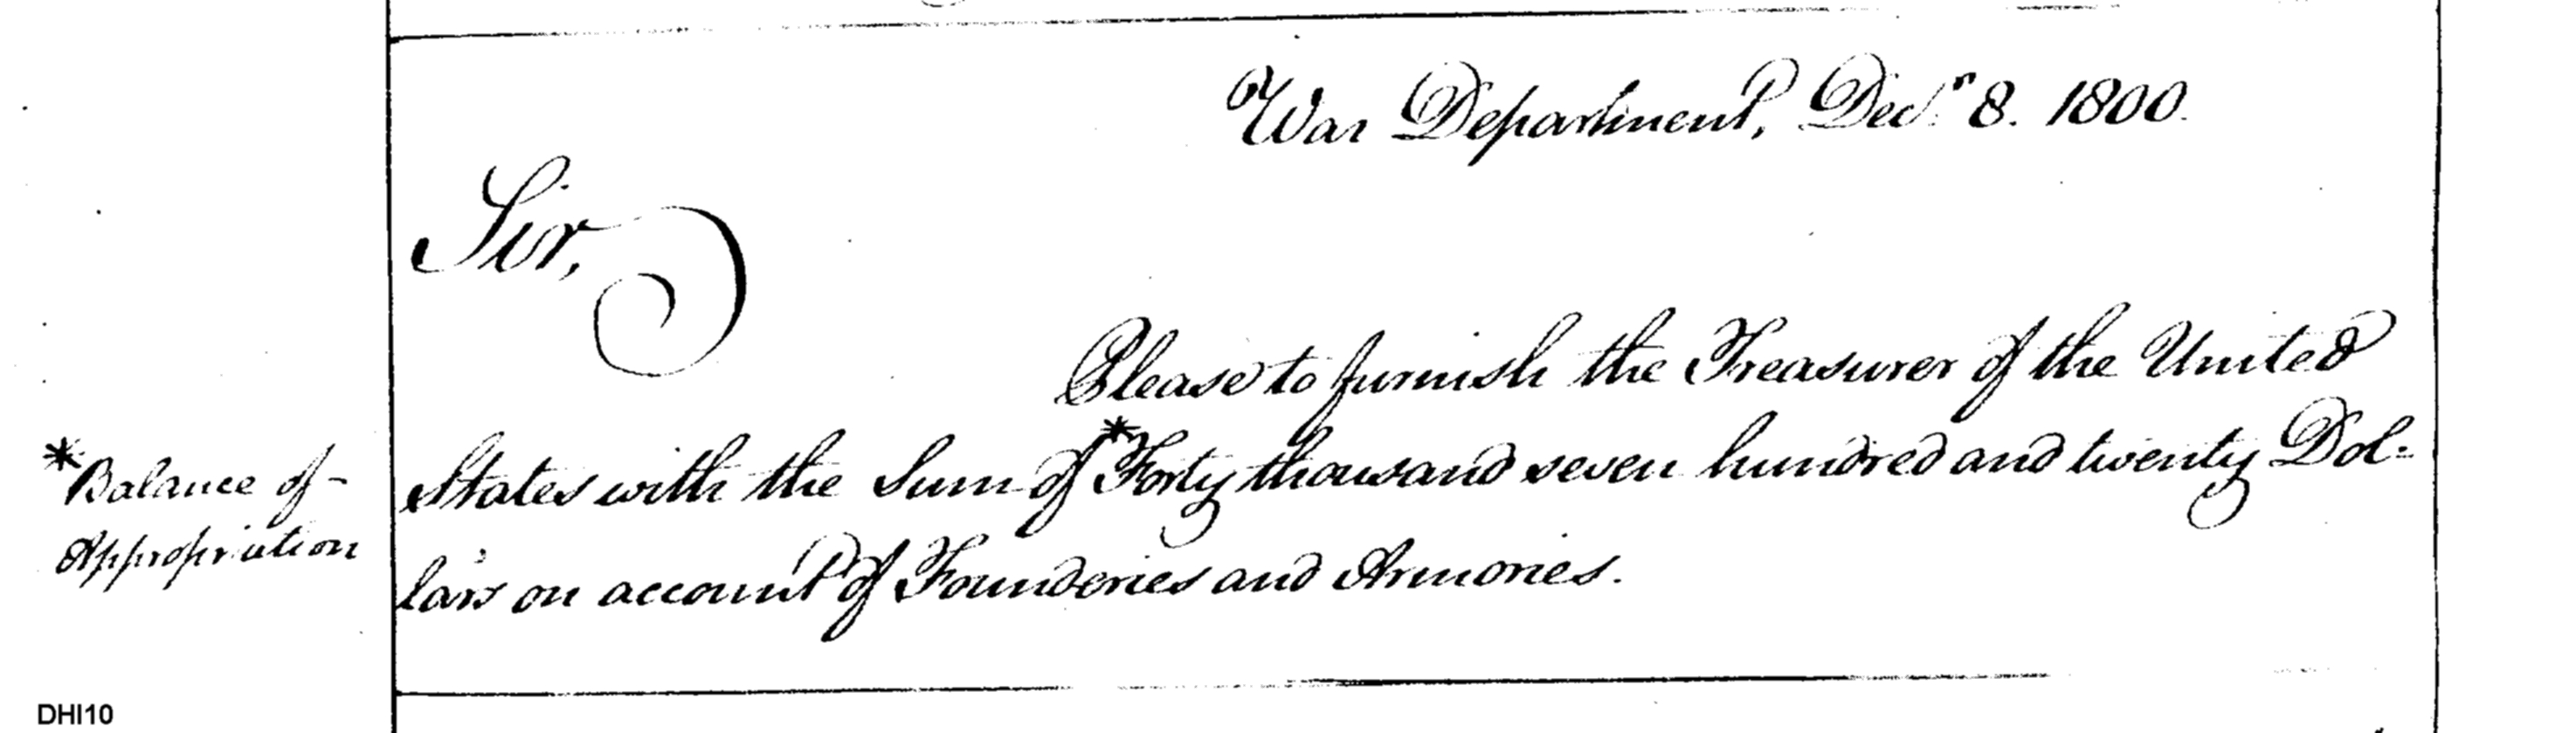 War Department, Decr. 8. 1800.
Sir,
Please to furnish the Treasurer of the United
States with the Sum of *Forty thousand seven hundred and twenty Dol-
lars on account of Founderies and Armories.
*Balance of
Appropriation
DHI10